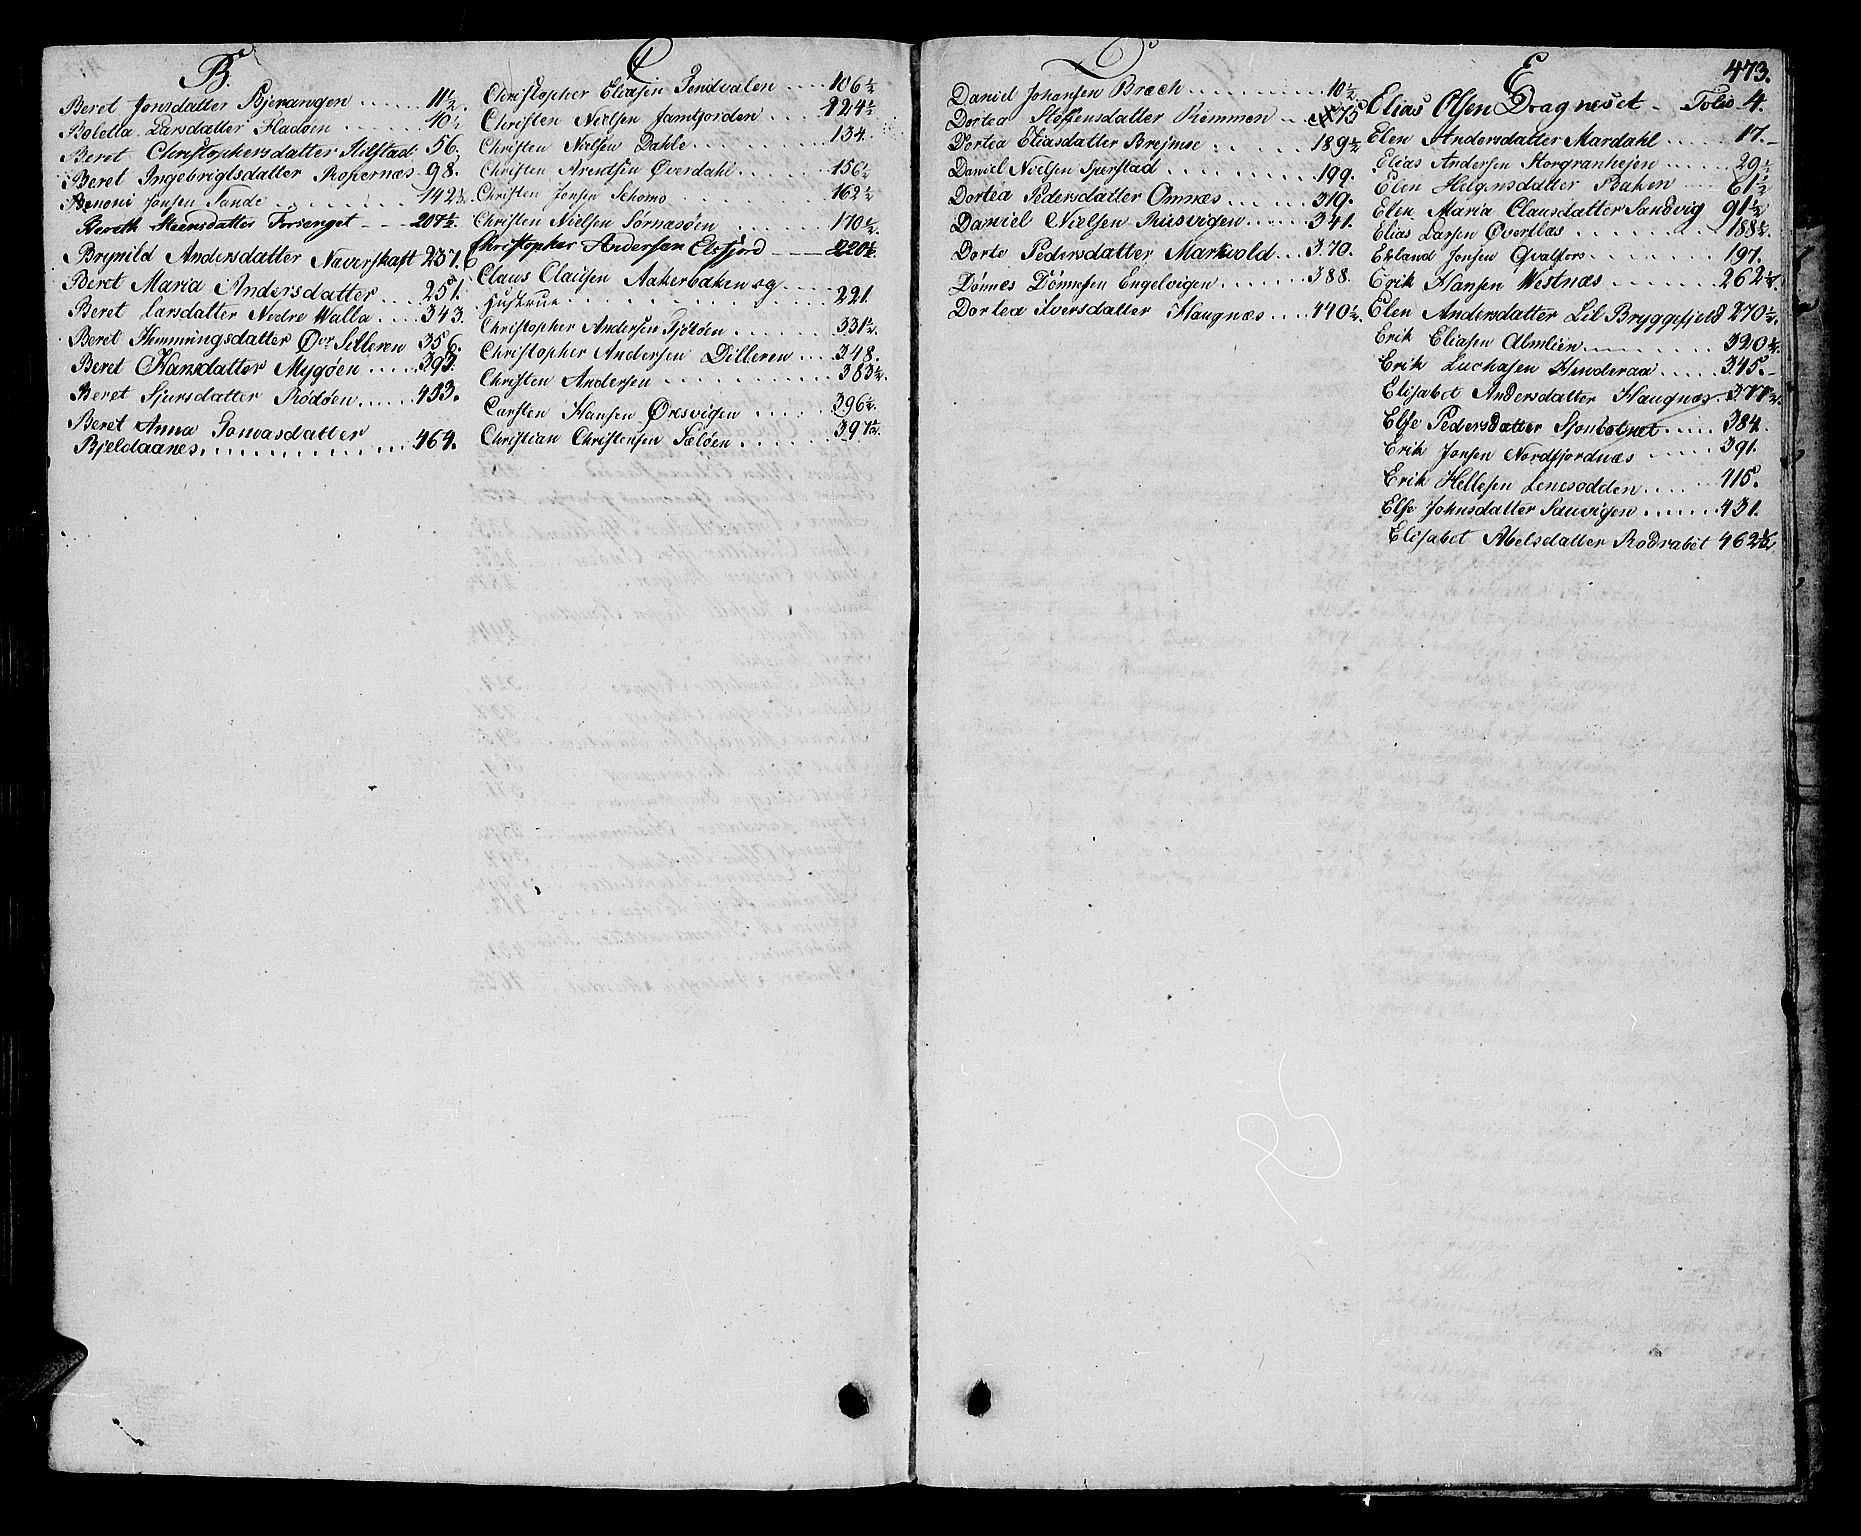 B.
Beret Jonsdatter Bjerangen ..... 11½.
Boletta Larsdatter Fladøen ...... 40½
Beret Christophersdatter Hilstad 56.
Beret Ingebrigtsdatter Roßernæs 98.
Benoni Jonsen Sande ....... 142½.
Bereth Steensdatter Forsanget --- 207½.
Brynild Andersdatter Naverskaft 237.
Beret Maria Andersdatter .... 257.
Beret Larsdatter Nedre Walla .... 343.
Beret Hemmingsdatter Øvr Silleren 356.
Beret Hansdatter Mygøen ..... 393.
Beret Sjursdatter Rødøen ..... 403.
Beret Anna Tomasdatter
Bjeldaanes ............. 464.
C
Christopher Eliasen Tendvalen .... 106½
Christen Nielsen Jamtjorden .... 124½
Christen Nielsen Dahle ........ 134.
Christen Arendtsen Øverdahl ...... 156½
Christen Jensen Schomo ......... 162½
Christen Nielsen Sørnæsøen ...... 170½
Christopher Andersen Elsfjord ---- 220½.
Claus Claussen Aakerbaken og
Hustrue ............. 221.
Christopher Andersen Tjøtøen .... 331½.
Christopher Andersen Dilleren ... 348.
Christen Andersen .......... 383½.
Carsten Hansen Øresvigen ..... 396½.
Christian Christensen Sæløen .... 397½.
D
Daniel Johansen Bræck ......... 10½
Dortea Steffensdatter Remmen ... 75
Dortea Eliasdatter Brejmoe ...... 189½
Daniel Nielsen Sperstad ......... 199.
Dortea Pedersdatter Omnæs ...... 319.
Daniel Nielsen Ruisvigen ..... 341.
Dorte Pedersdatter Markvold ... 370.
Dønnes Dønnesen Engelvigen ..... 388.
Dortea Iversdatter Haugnæs ... 440½.
E
473.
Elias Olsen Dragneset - Folio 4.
Elen Andersdatter Mardahl ..... 17.
Elias Andersen Storgranhejen ..... 29½
Elen Helgensdatter Baken ..... 61½
Elen Maria Clausdatter Sandvig 91½
Elias Larsen Øverlæs ........ 188½.
Erland Jonsen Qvalfors ....... 197.
Erik Hansen Westnæs ........ 262½.
Elen Andersdatter Lil Bryggefjeld 270½.
Erik Eliasen Almlien ......... 320½.
Erik Luchasen Hunderaa ..... 345.
Elisabet Andersdatter Haugnæs .. 377½.
Else Pedersdatter Sjonbotnet .... 384.
Erik Jonsen Nordfjordnæs ..... 391.
Erik Hellesen Lenesodden ..... 415.
Else Johnsdatter Sauvigen ...... 431.
Elisabet Abelsdatter Rodrabet 462½